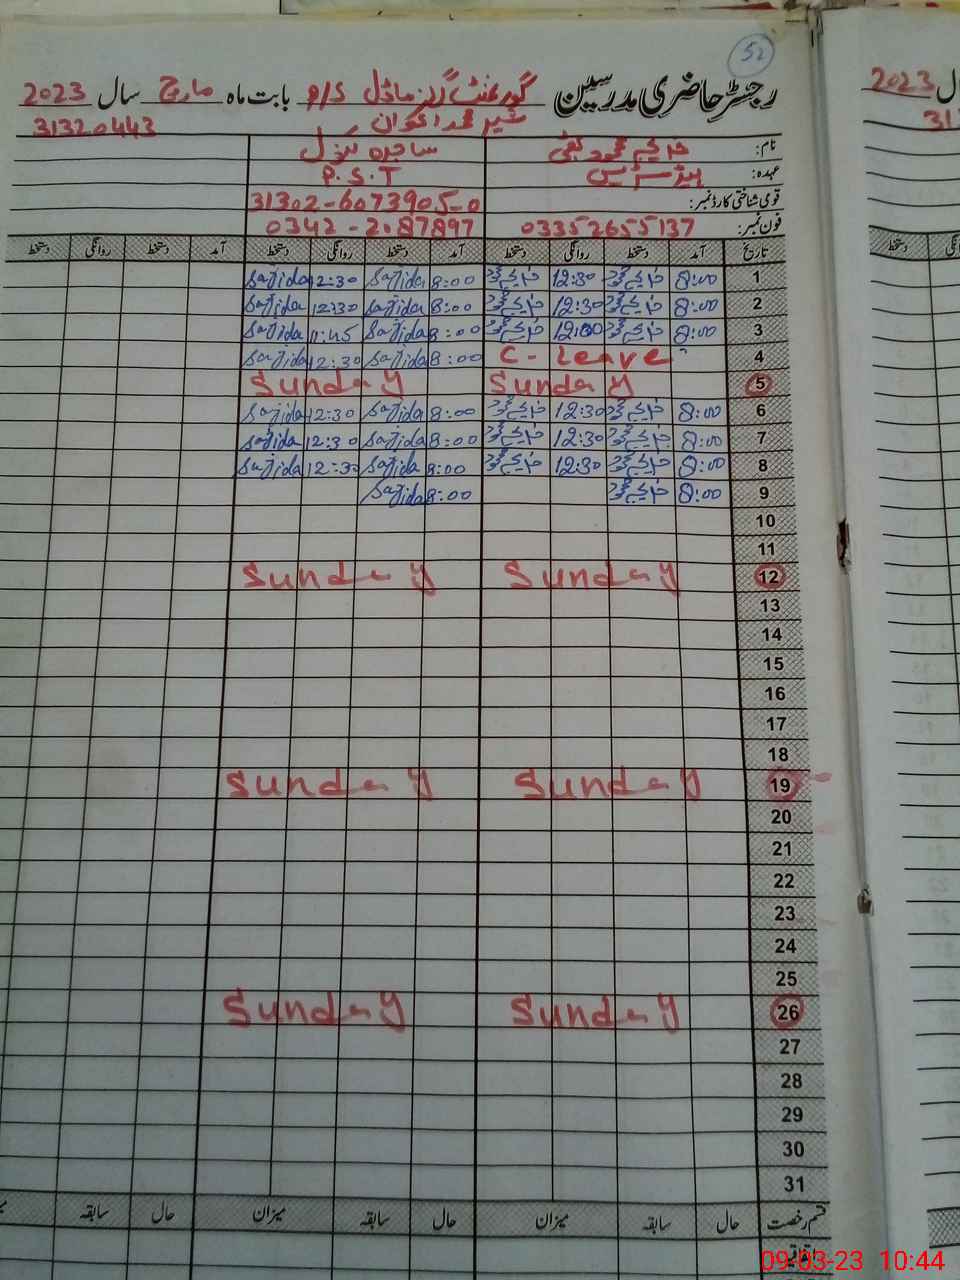 52
رجسٹر حاضری مدرسین گورنمنٹ گرلز ماڈل P/S بابت ماہ مارچ سال 2023
شیر محمد اعوان 31320443
نام: ساجدہ بتول
عہدہ: ہیڈمسٹریس P.S.T
قومی شناختی کارڈ نمبر: 31302-6073905-0
فون نمبر: 03352655137 0342-2087897
تاریخ آمد دستخط روانگی دستخط آمد دستخط روانگی دستخط آمد دستخط روانگی دستخط
1 8:00 12:30 8:00 Sajida 12:30 Sajida
2 8:00 12:30 8:00 Sajida 12:30 Sajida
3 8:00 12:00 8:00 Sajida 11:45 Sajida
4 C-Leave 8:00 Sajida 12:30 Sajida
5 Sunday Sunday
6 8:00 12:30 8:00 Sajida 12:30 Sajida
7 8:00 12:30 8:00 Sajida 12:30 Sajida
8 8:00 12:30 8:00 Sajida 12:30 Sajida
9 8:00 8:00 Sajida
10
11
12 Sunday Sunday
13
14
15
16
17
18
19 Sunday Sunday
20
21
22
23
24
25
26 Sunday Sunday
27
28
29
30
31
قسم رخصت حال سابقہ میزان حال سابقہ میزان حال سابقہ
اتفاقیہ
2023 سال
دستخط
09-03-23 10:44